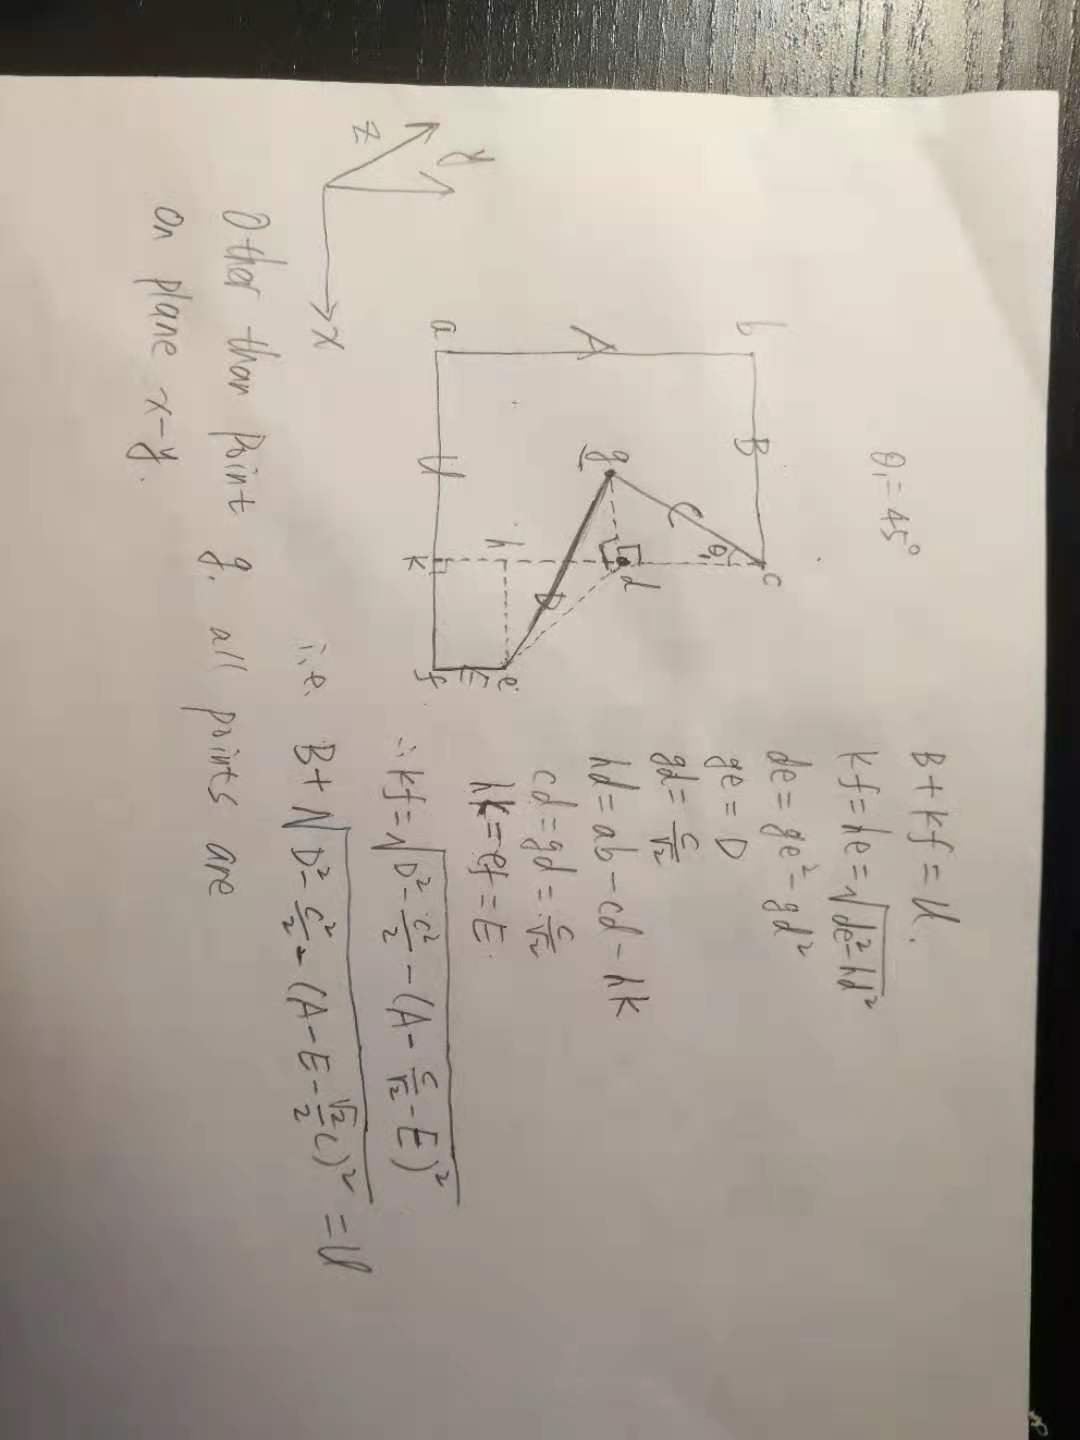 θ₁ = 45°
b B c
θ₁
C
g d
A D
h e
E
a U k f
y
z
x
B + kf = U.
kf = he = √(de² - hd²)
de = ge² - gd²
ge = D
gd = C/√2
hd = ab - cd - hk
cd = gd = C/√2
hk = ef = E
∴ kf = √(D² - C²/2 - (A - C/√2 - E)²)
i.e. B + √(D² - C²/2 - (A - E - √2/2 C)²) = U
Other than point g. all points are
on plane x-y.